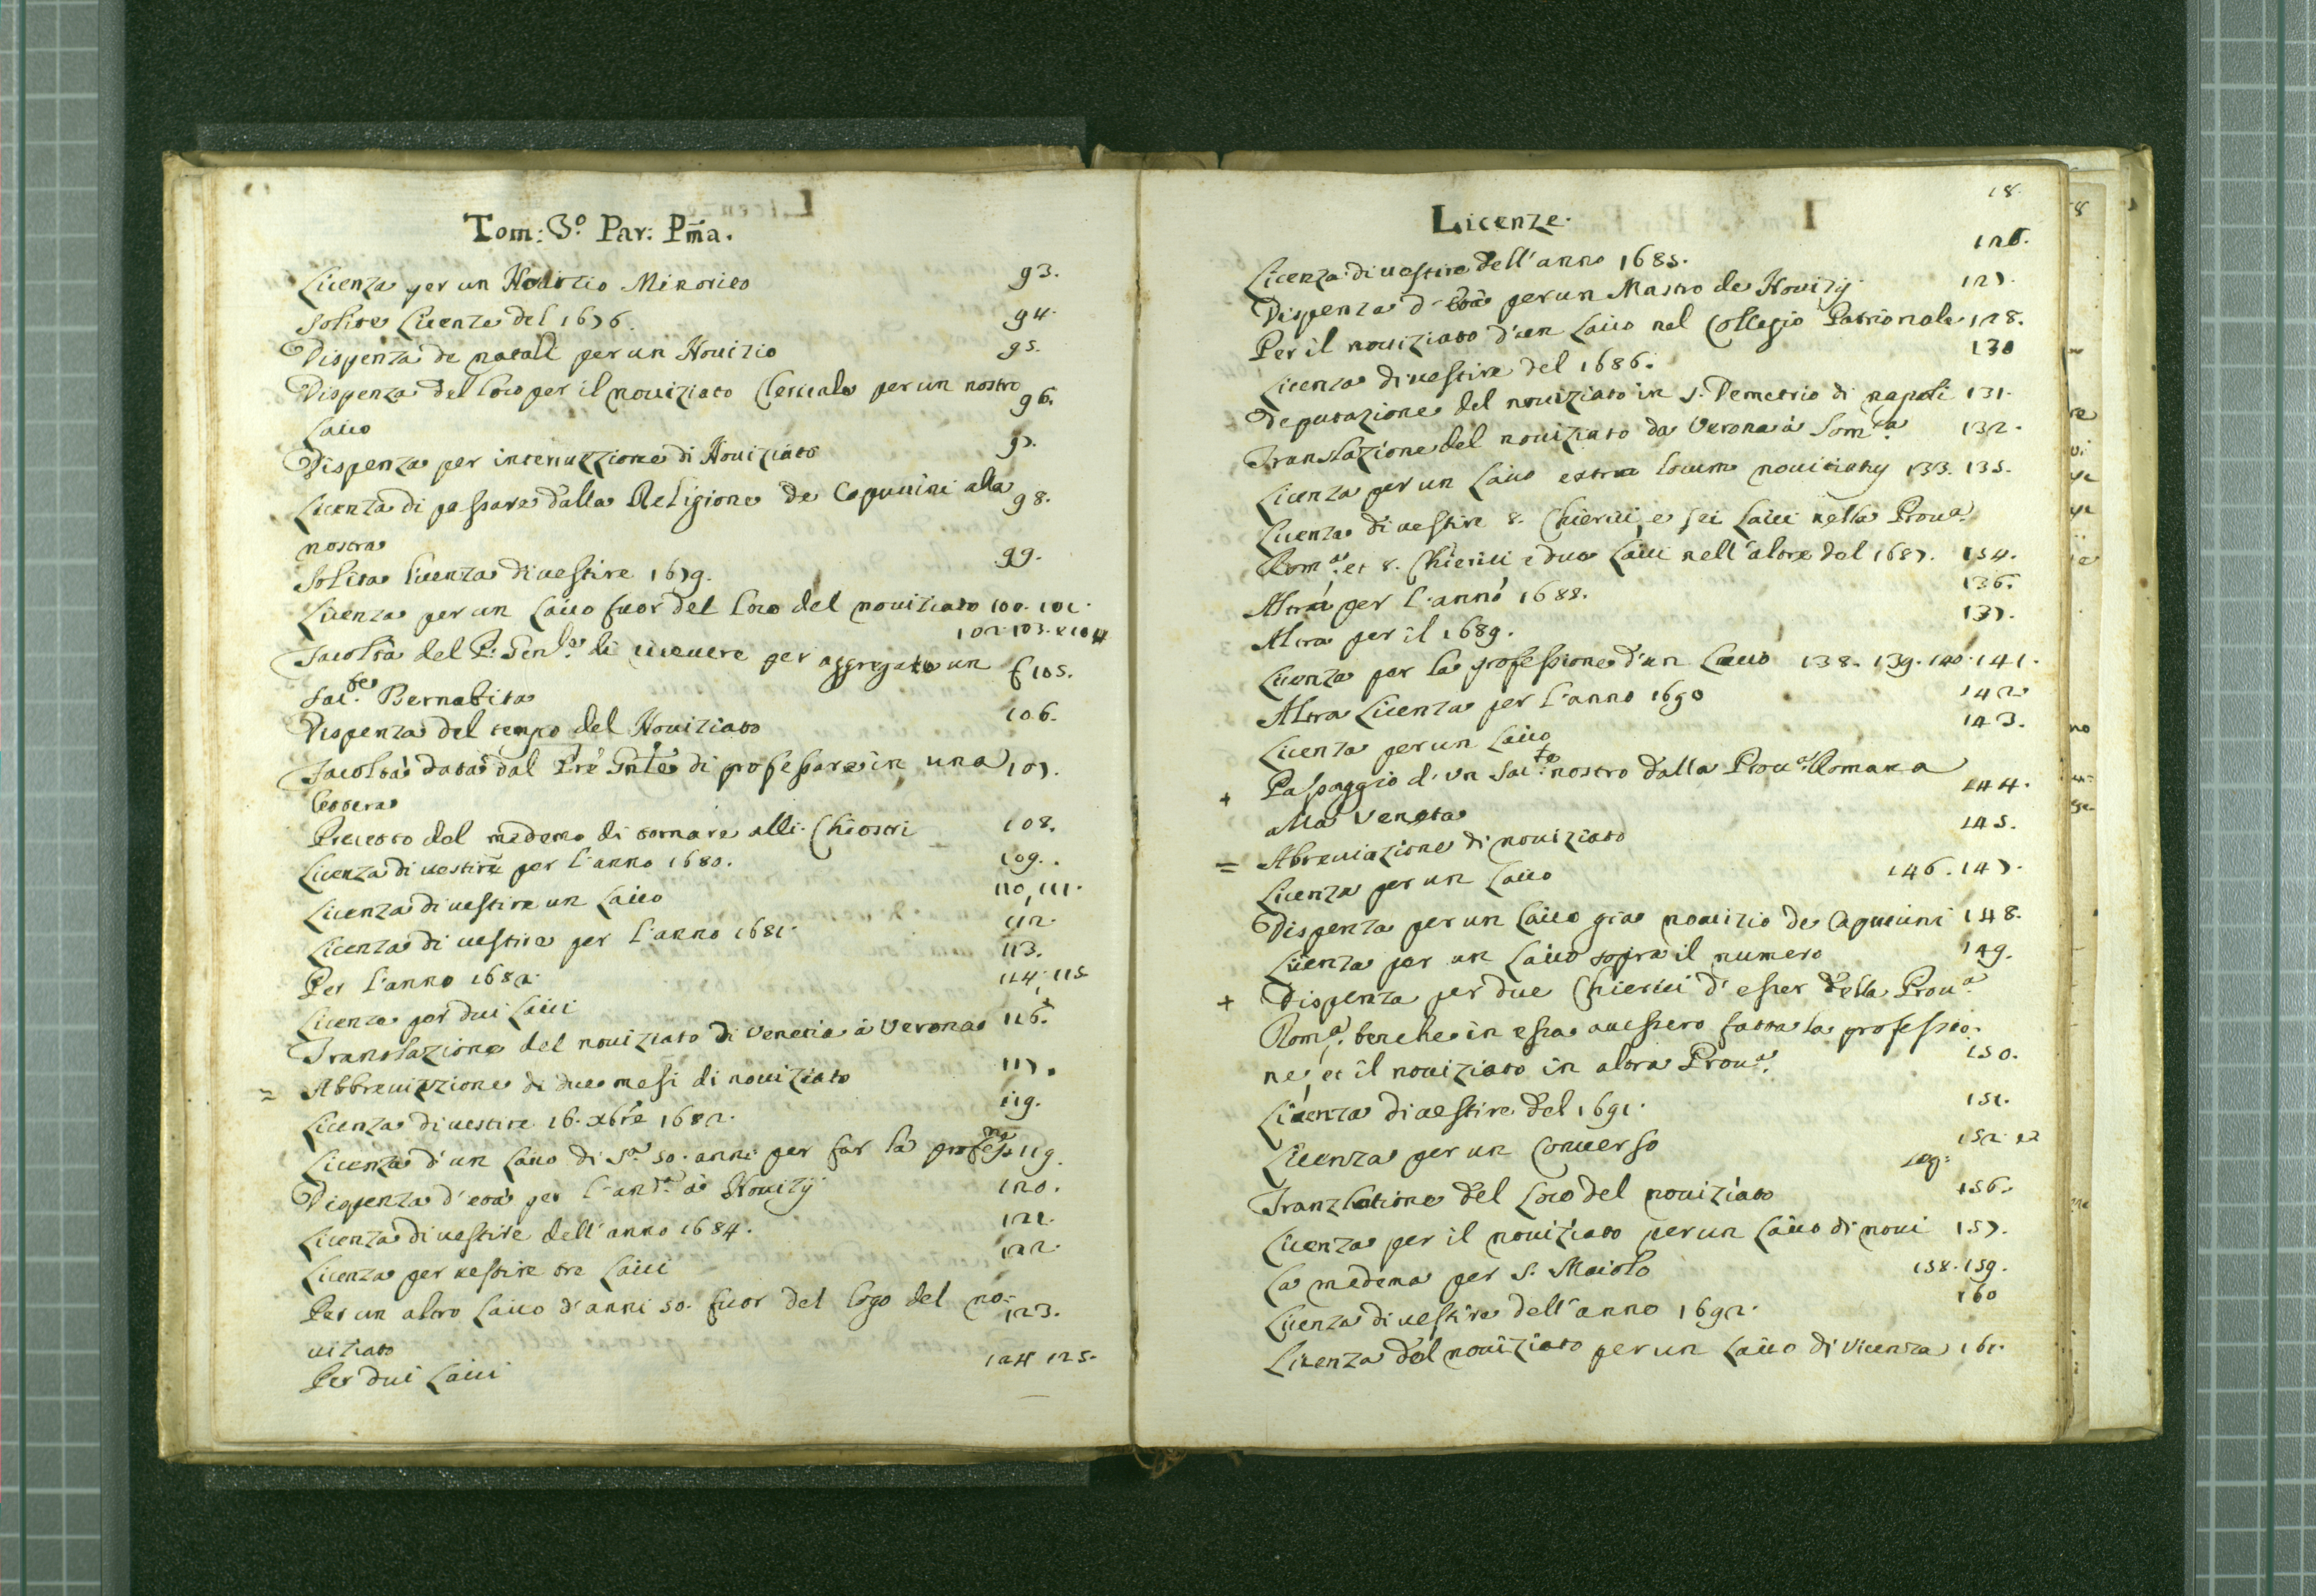 Tom: 3.º Par: Pma.
Licenza per un Nouizio Minorico 93.
Solite licenze del 1676. 94.
Dispenza de natali per un Nouizio 95.
Dispenza del loco per il nouiziato Clericale per un nostro 96.
Laico
Dispenza per interruzzione di Nouiziato 97.
Licenza di passare dalla Religione de Capuccini alla 98.
nostra
Solita licenza di uestire 1679. 99.
Licenza per un Laico fuor del loco del nouiziato 100. 101.
102. 103. e 104
Facoltà del P: Gen.le di riceuere per aggregato un
Sac.te Bernabita e 105.
Dispenza del tempo del Nouiziato 106.
Facoltà data dal Pre Gnle di professare in una 107.
lettera
Precetto dal medemo di tornare alli Chiostri 108.
Licenza di uestire per l'anno 1680. 109.
Licenza di uestire un Laico 110, 111.
Licenza di uestire per l'anno 1681. 112.
Per l'anno 1682. 113.
Licenza per dui Laici 114. 115.
Translazione del nouiziato di Venetia à Verona 116.
= Abbreuiazione di due mesi di nouiziato 117.
Licenza di uestire 16. xbre 1682. 119.
Licenza d'un Laico di S.a 50. anni per far la profes.ne 119.
Dispenza d'età per l'and.e à Nouizÿ 120.
Licenza di uestire dell'anno 1684. 121.
Licenza per uestire tre Laici 122.
Per un altro Laico d'anni 50. fuor del logo del no- 123.
uiziato
Per dui Laici 124 125.
18.
Licenze.
Licenza di uestire dell'anno 1685. 126.
Dispenza d'età per un Mastro de Nouizÿ 127.
Per il nouiziato d'un Laico nel Collegio Patrionale 128.
Licenza di uestire del 1686. 130
Deputazione del nouiziato in S. Demetrio di napoli 131.
Translazione del nouiziato da Verona à Som.ca 132.
Licenza per un Laico extra locum nouitiatus 133. 135.
Licenza di uestire 8. Chierici e sei Laici nella Prou.a
Rom.a et 8. Chierici e due Laici nell'altre del 1687. 134.
Altra per l'anno 1688. 136.
Altra per il 1689. 137.
Licenza per la professione d'un Laico 138. 139. 140. 141.
Altra Licenza per l'anno 1690 142
Licenza per un Laico 143.
+ Passaggio d'un Sac.te nostro dalla Prou.a Romana
alla Veneta 144.
= Abreuiazione di nouiziato 145.
Licenza per un Laico 146. 147.
Dispenza per un Laico già nouizio de Capuccini 148.
Licenza per un Laico sopra il numero 149.
+ Dispenza per due Chierici d'esser della Prou.a
Rom.a, benche in essa auessero fatta la professio-
ne, et il nouiziato in altra Prou.a 150.
Licenza di uestire del 1691. 151.
Licenza per un Conuerso 152. et
seq:
Tranzlatione del Loco del nouiziato 156.
Licenza per il nouiziato per un Laico di noui 157.
La medema per S. Maiolo 158. 159.
Licenza di uestire dell'anno 1692. 160
Licenza del nouiziato per un Laico di Vicenza 161.